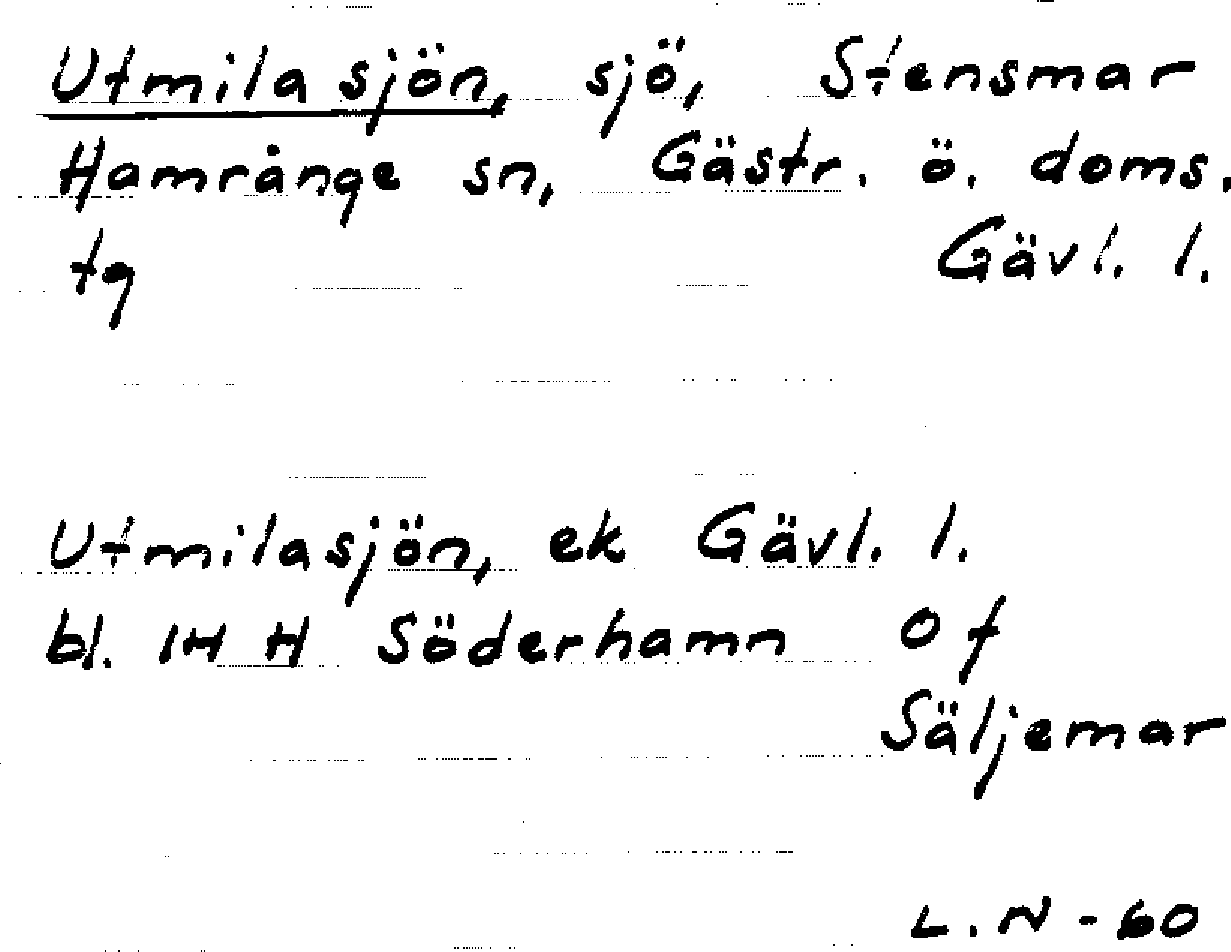 Utmilasjön, sjö, Stensmar
Hamrånge sn, Gästr. ö. doms.
tg Gävl. l.
Utmilasjön, ek Gävl. l.
bl. 14 H Söderhamn 0 f
Säljemar
L. N - 60